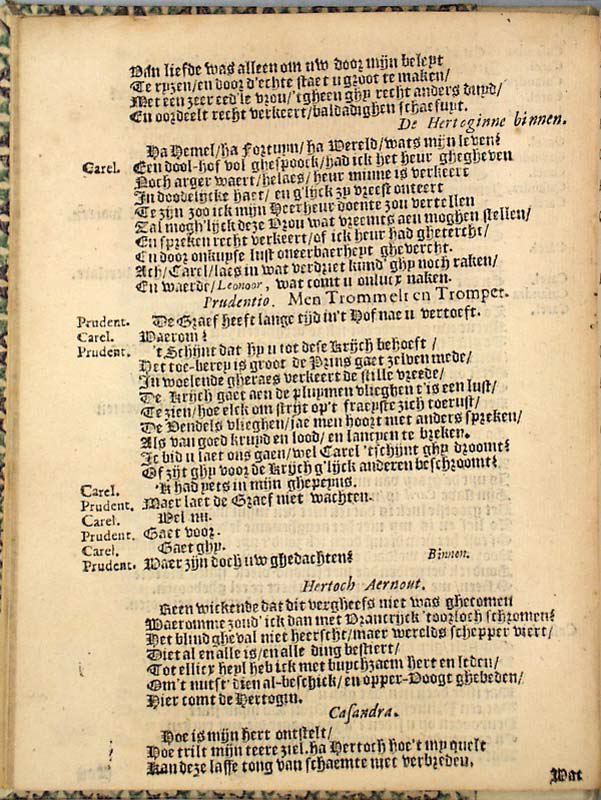 Van liefde was alleen om uw door mijn beleyt
Te ryzen/en door d'echte staet u groot te maken/
Met een zeer eed'le vrou/'tgheen ghy recht anders duyd/
En oordeelt recht verkeert/baldadighen schaefuyt.
De Hertoginne binnen.
Ha Hemel/ha Fortuyn/ha Wereld/wats mijn leven?
Carel. Een dool-hof vol ghespoock/had ick het heur ghegheven
Noch arger waert/helaes/heur minne is verkeert
In doodelijcke haet/ en g'lijck zy vreest onteert
Te zijn zoo ick mijn Heerheur doente zou vertellen
Zal mogh'lijck deze Vrou wat vreemts aen moghen stellen/
En spreken recht verkeert/of ick heur had ghetercht/
En door onkuyse lust oneerbaerheyt ghevercht.
Ach/Carel/laes in wat verdriet kund' ghy noch raken/
En waerde/Leonoor, wat comt u onluck naken.
Prudentio. Men Trommelt en Trompet.
Prudent. De Graef heeft lange tijd in't Hof nae u vertoeft.
Carel. Waerom?
Prudent. 't Schijnt dat hy u tot dese Krijch behoeft/
Het toe-bereyt is groot de Prins gaet zelven mede/
In woelende gheraes verkeert de stille vreede/
De Krijch gaet aen de pluymen vlieghen t'is een lust/
Te zien/hoe elck om strijt op't fraeyste zich toerust/
De Vendels vlieghen/jae men hoort niet anders spreken/
Als van goed kruyd en lood/en lancyen te breken.
Ic bid u laet ons gaen/wel Carel 'tschijnt ghy droomt?
Of zijt ghy voor de Krijch g'lijck anderen beschroomt?
Carel. 'K had yets in mijn ghepeyns.
Prudent. Maer laet de Graef niet wachten.
Carel. Wel nu.
Prudent. Gaet voor.
Carel. Gaet ghy.
Prudent. Waer zijn doch uw ghedachten? Binnen.
Hertoch Aernout.
Geen wickende dat dit vergheefs niet was ghecomen
Waeromme zoud' ick dan met Vrancrijck 'toorloch schromen?
Het blind gheval niet heerscht/maer werelds schepper viert/
Diet al en alle is/en alle ding bestiert/
Tot ellicx heyl heb ick met buychzaem hert en leden/
Om't nutst' dien al-beschick/en opper-Voogt ghebeden/
Hier comt de Hertogin.
Casandra.
Hoe is mijn hert ontstelt/
Hoe trilt mijn teere ziel. ha Hertoch hoe't my quelt
Kan deze lasse tong van schaemte niet verbreden.
Wat